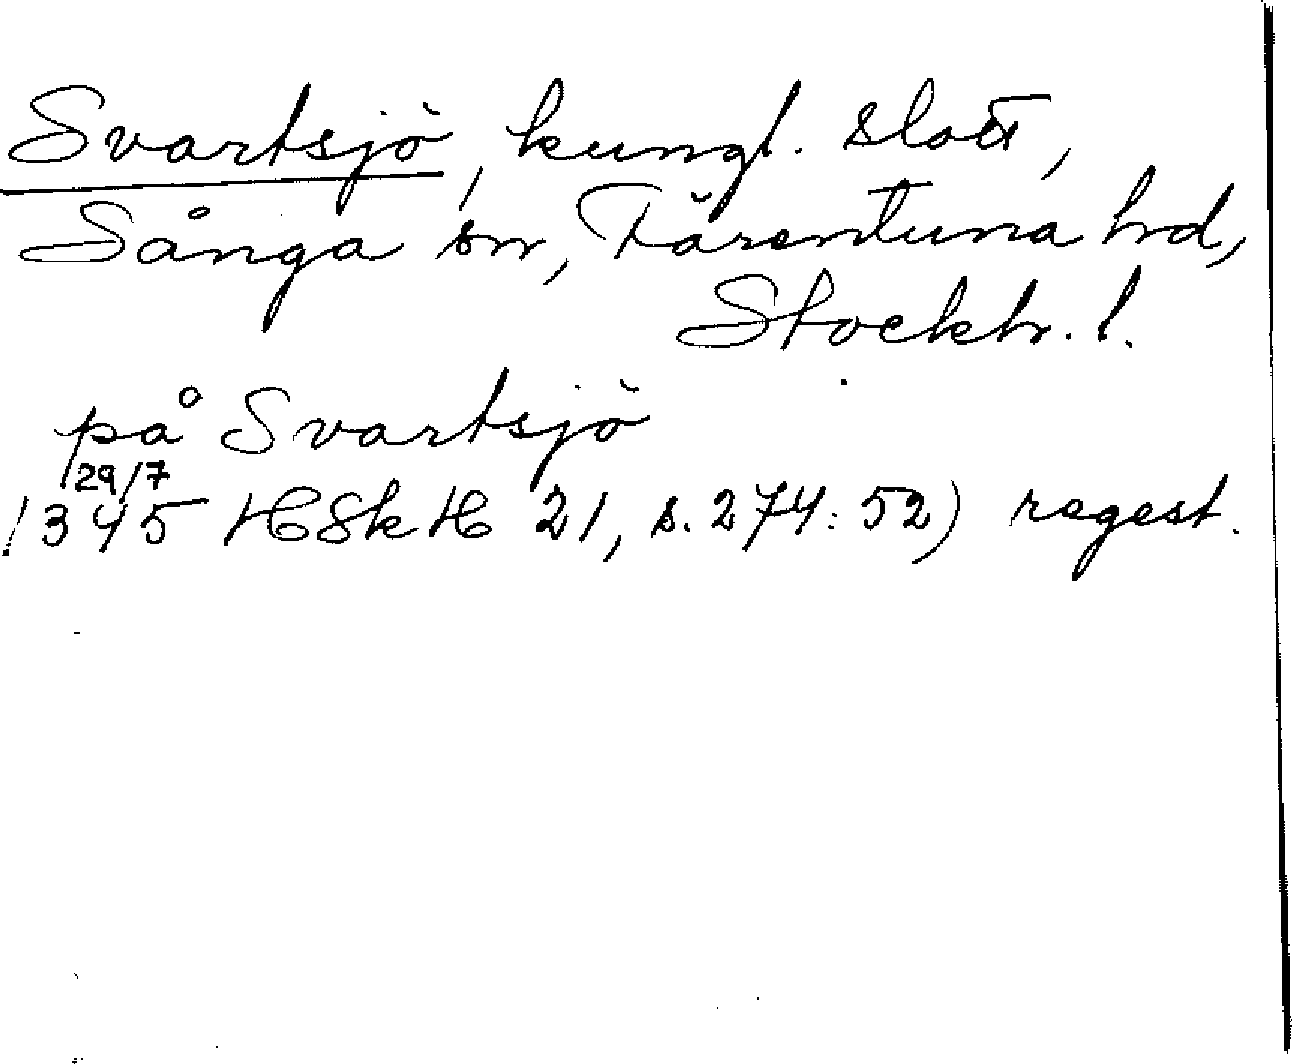 Svartsjö, kungl. slott,
Sånga sn, Färentuna hd,
Stockh. l.
på Svartsjö
29/7
1345 HSkH 21, s. 274: 52) regest.